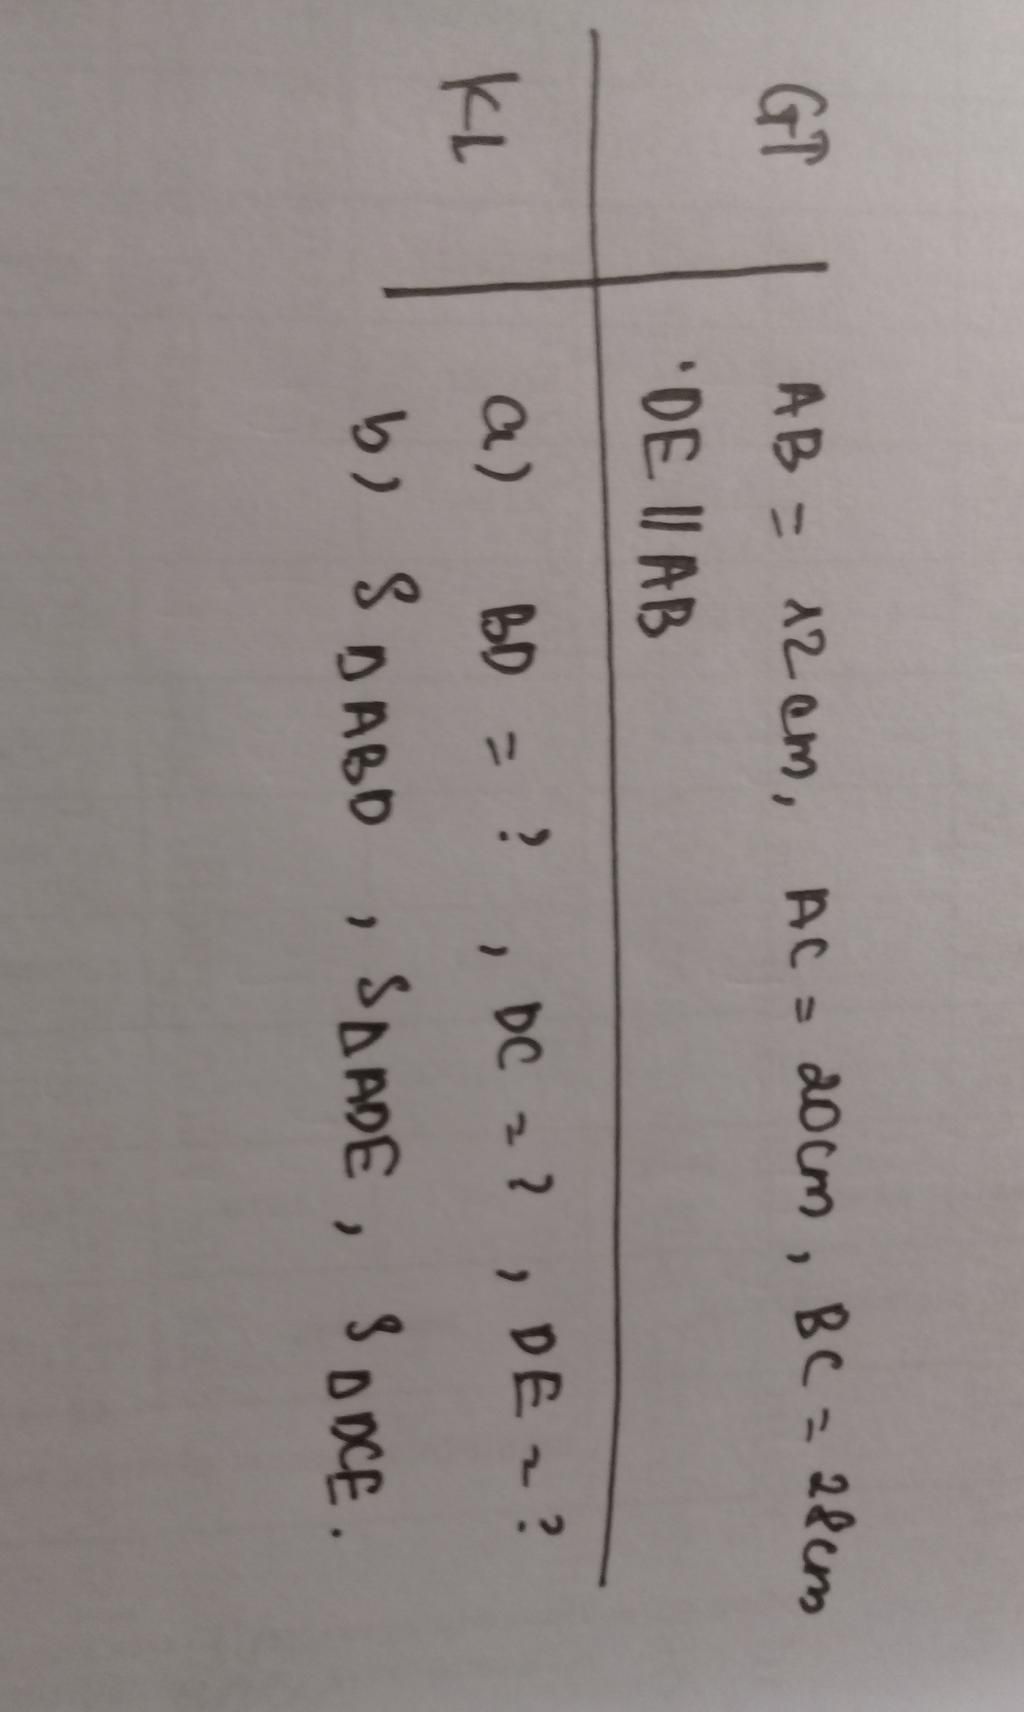 GT AB = 12cm, AC = 20cm, BC = 28cm
. DE // AB
KL a) BD = ?, DC = ?, DE = ?
b) SΔABD, SΔADE, SΔDCE.